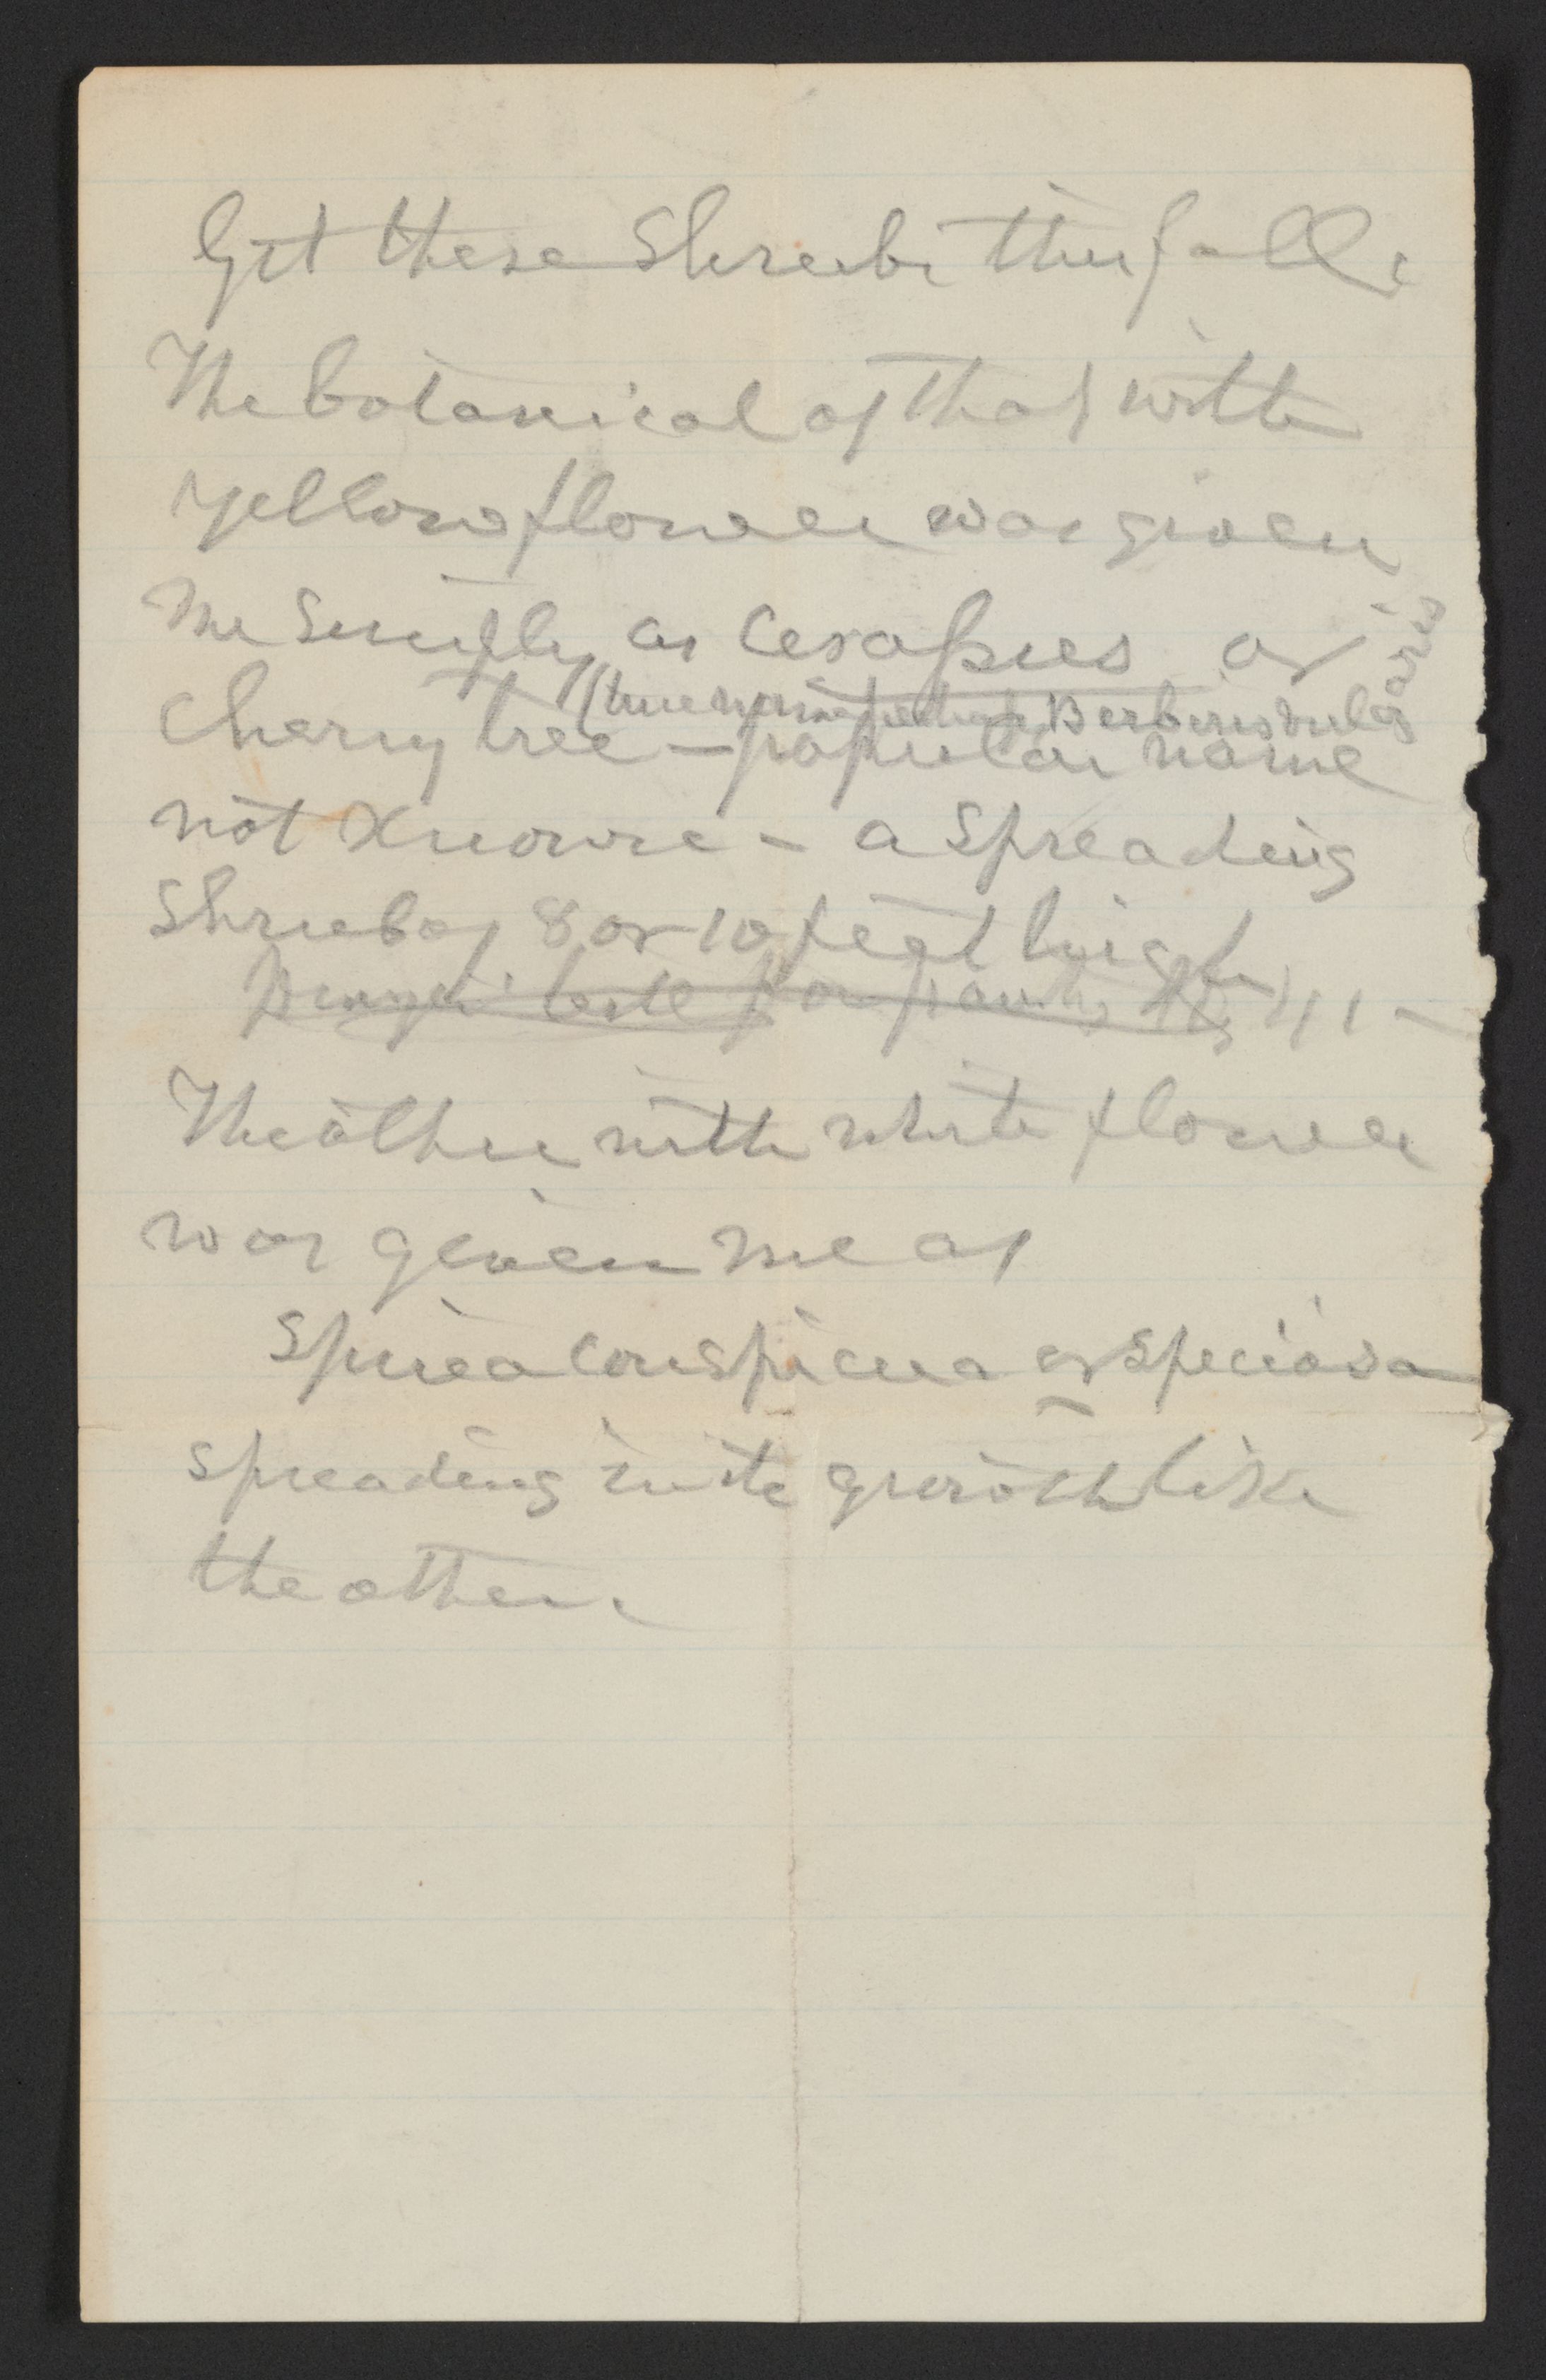 Get these Shrubs this fall.
The botanical of that with
yellow flower was given
me simply as Cerasus or
(true name perhaps Berberis vulgaris
Cherry tree – popular name
not known – a spreading
Shrub of 8 or 10 feet high
The other with white flower
was given me as
Spirea conspicua or speciosa
spreading in its growth like
the other.